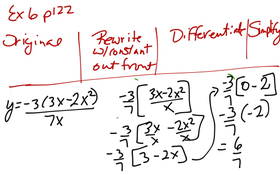 Ex 6 p122
Original
Rewrite w/constant out front
Differentiate
Simplify
y = -3(3x-2x²)/7x
-3/7 [3x-2x²/x]
-3/7 [3x/x - 2x²/x]
-3/7 [3-2x]
-3/7 [0-2]
-3/7 (-2)
= 6/7